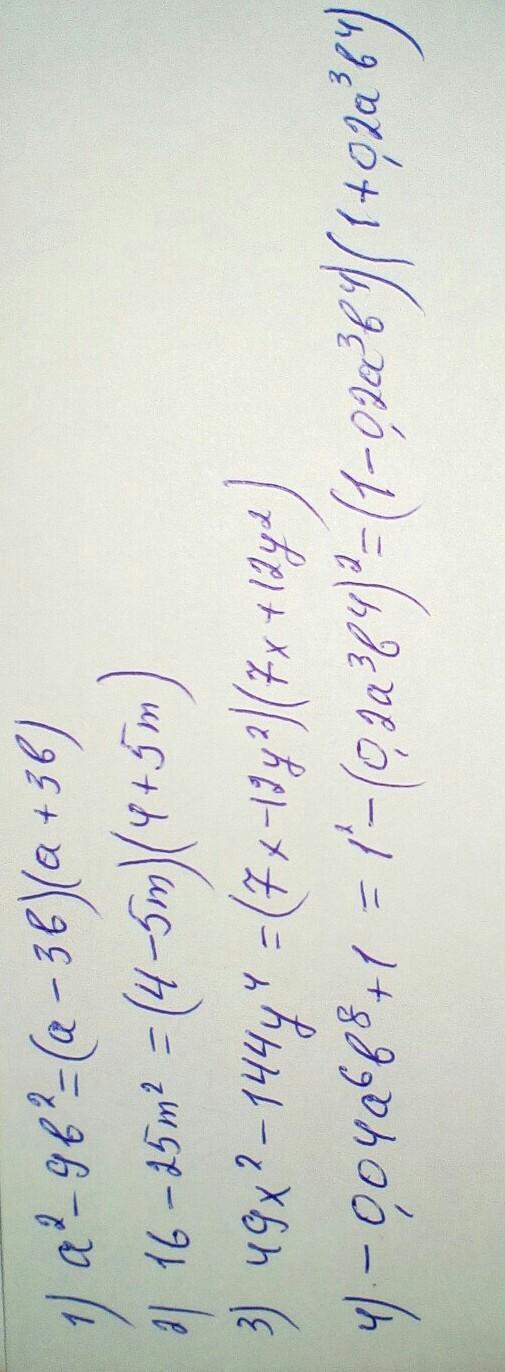 1) a² - 9b² = (a - 3b)(a + 3b)
2) 16 - 25m² = (4 - 5m)(4 + 5m)
3) 49x² - 144y⁴ = (7x - 12y²)(7x + 12y²)
4) - 0,04a⁶b⁸ + 1 = 1² - (0,2a³b⁴)² = (1 - 0,2a³b⁴)(1 + 0,2a³b⁴)